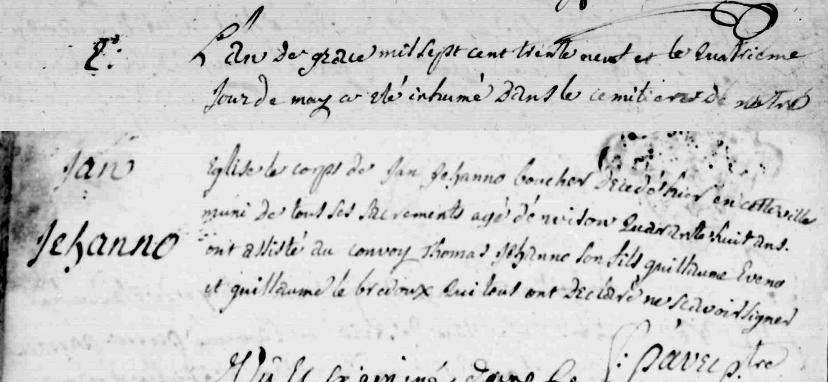 L'an de grace mil sept cent trente neuf et le quatrieme
jour de may a eté inhumé dans le cemitiere de notre
Jan
Jehanno
Eglise le corps de Jan Jehanno boucher decedé hier en cette ville
muni de tous ses sacrements agé d'environ quarante huit ans.
ont assisté au convoy Thomas Jehanno son fils guillaume Eveno
et guillaume le bredoux qui tous ont declaré ne scavoir signer